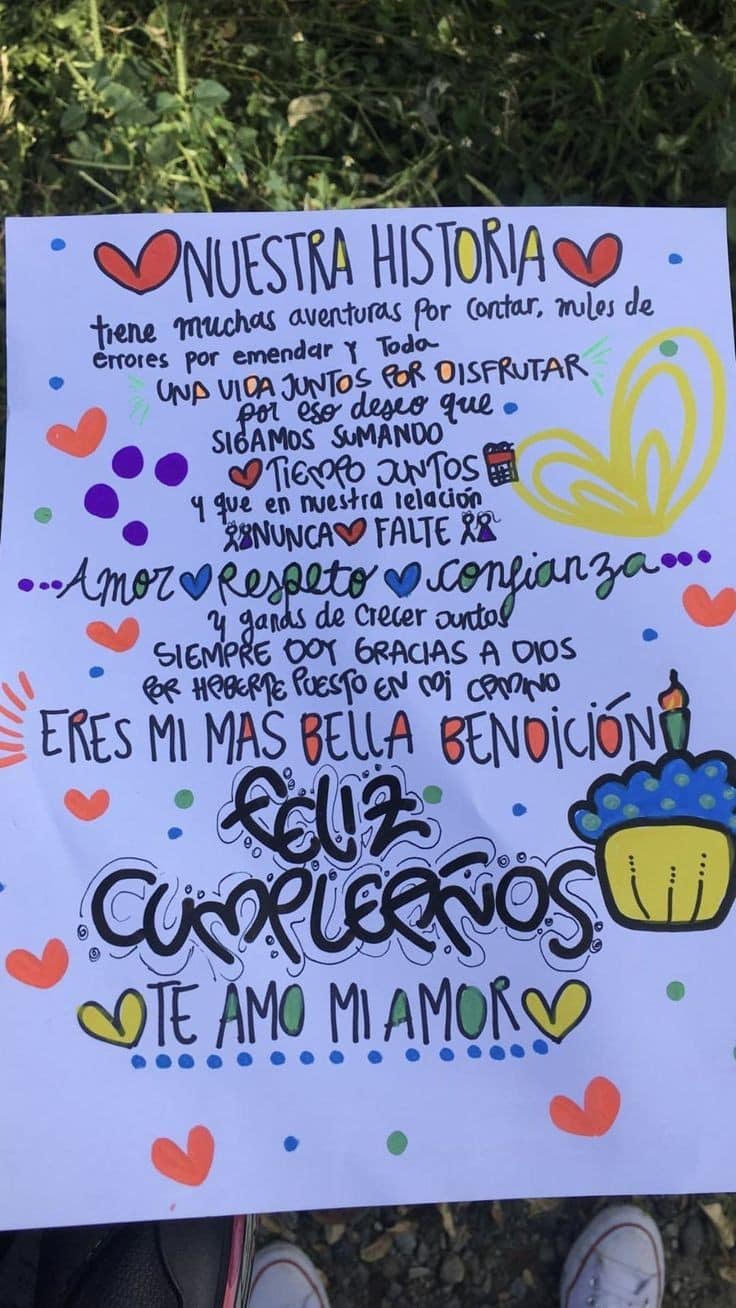 NUESTRA HISTORIA
tiene muchas aventuras por contar, miles de
errores por emendar y Toda
UNA VIDA JUNTOS POR DISFRUTAR
por eso deseo que
SIGAMOS SUMANDO
TIEMPO JUNTOS
y que en nuestra relación
NUNCA FALTE
Amor Respeto confianza
y ganas de crecer juntos
SIEMPRE DOY GRACIAS A DIOS
POR HABERTE PUESTO EN MI CAMINO
ERES MI MAS BELLA BENDICIÓN
FELIZ
CUMPLEAÑOS
TE AMO MI AMOR